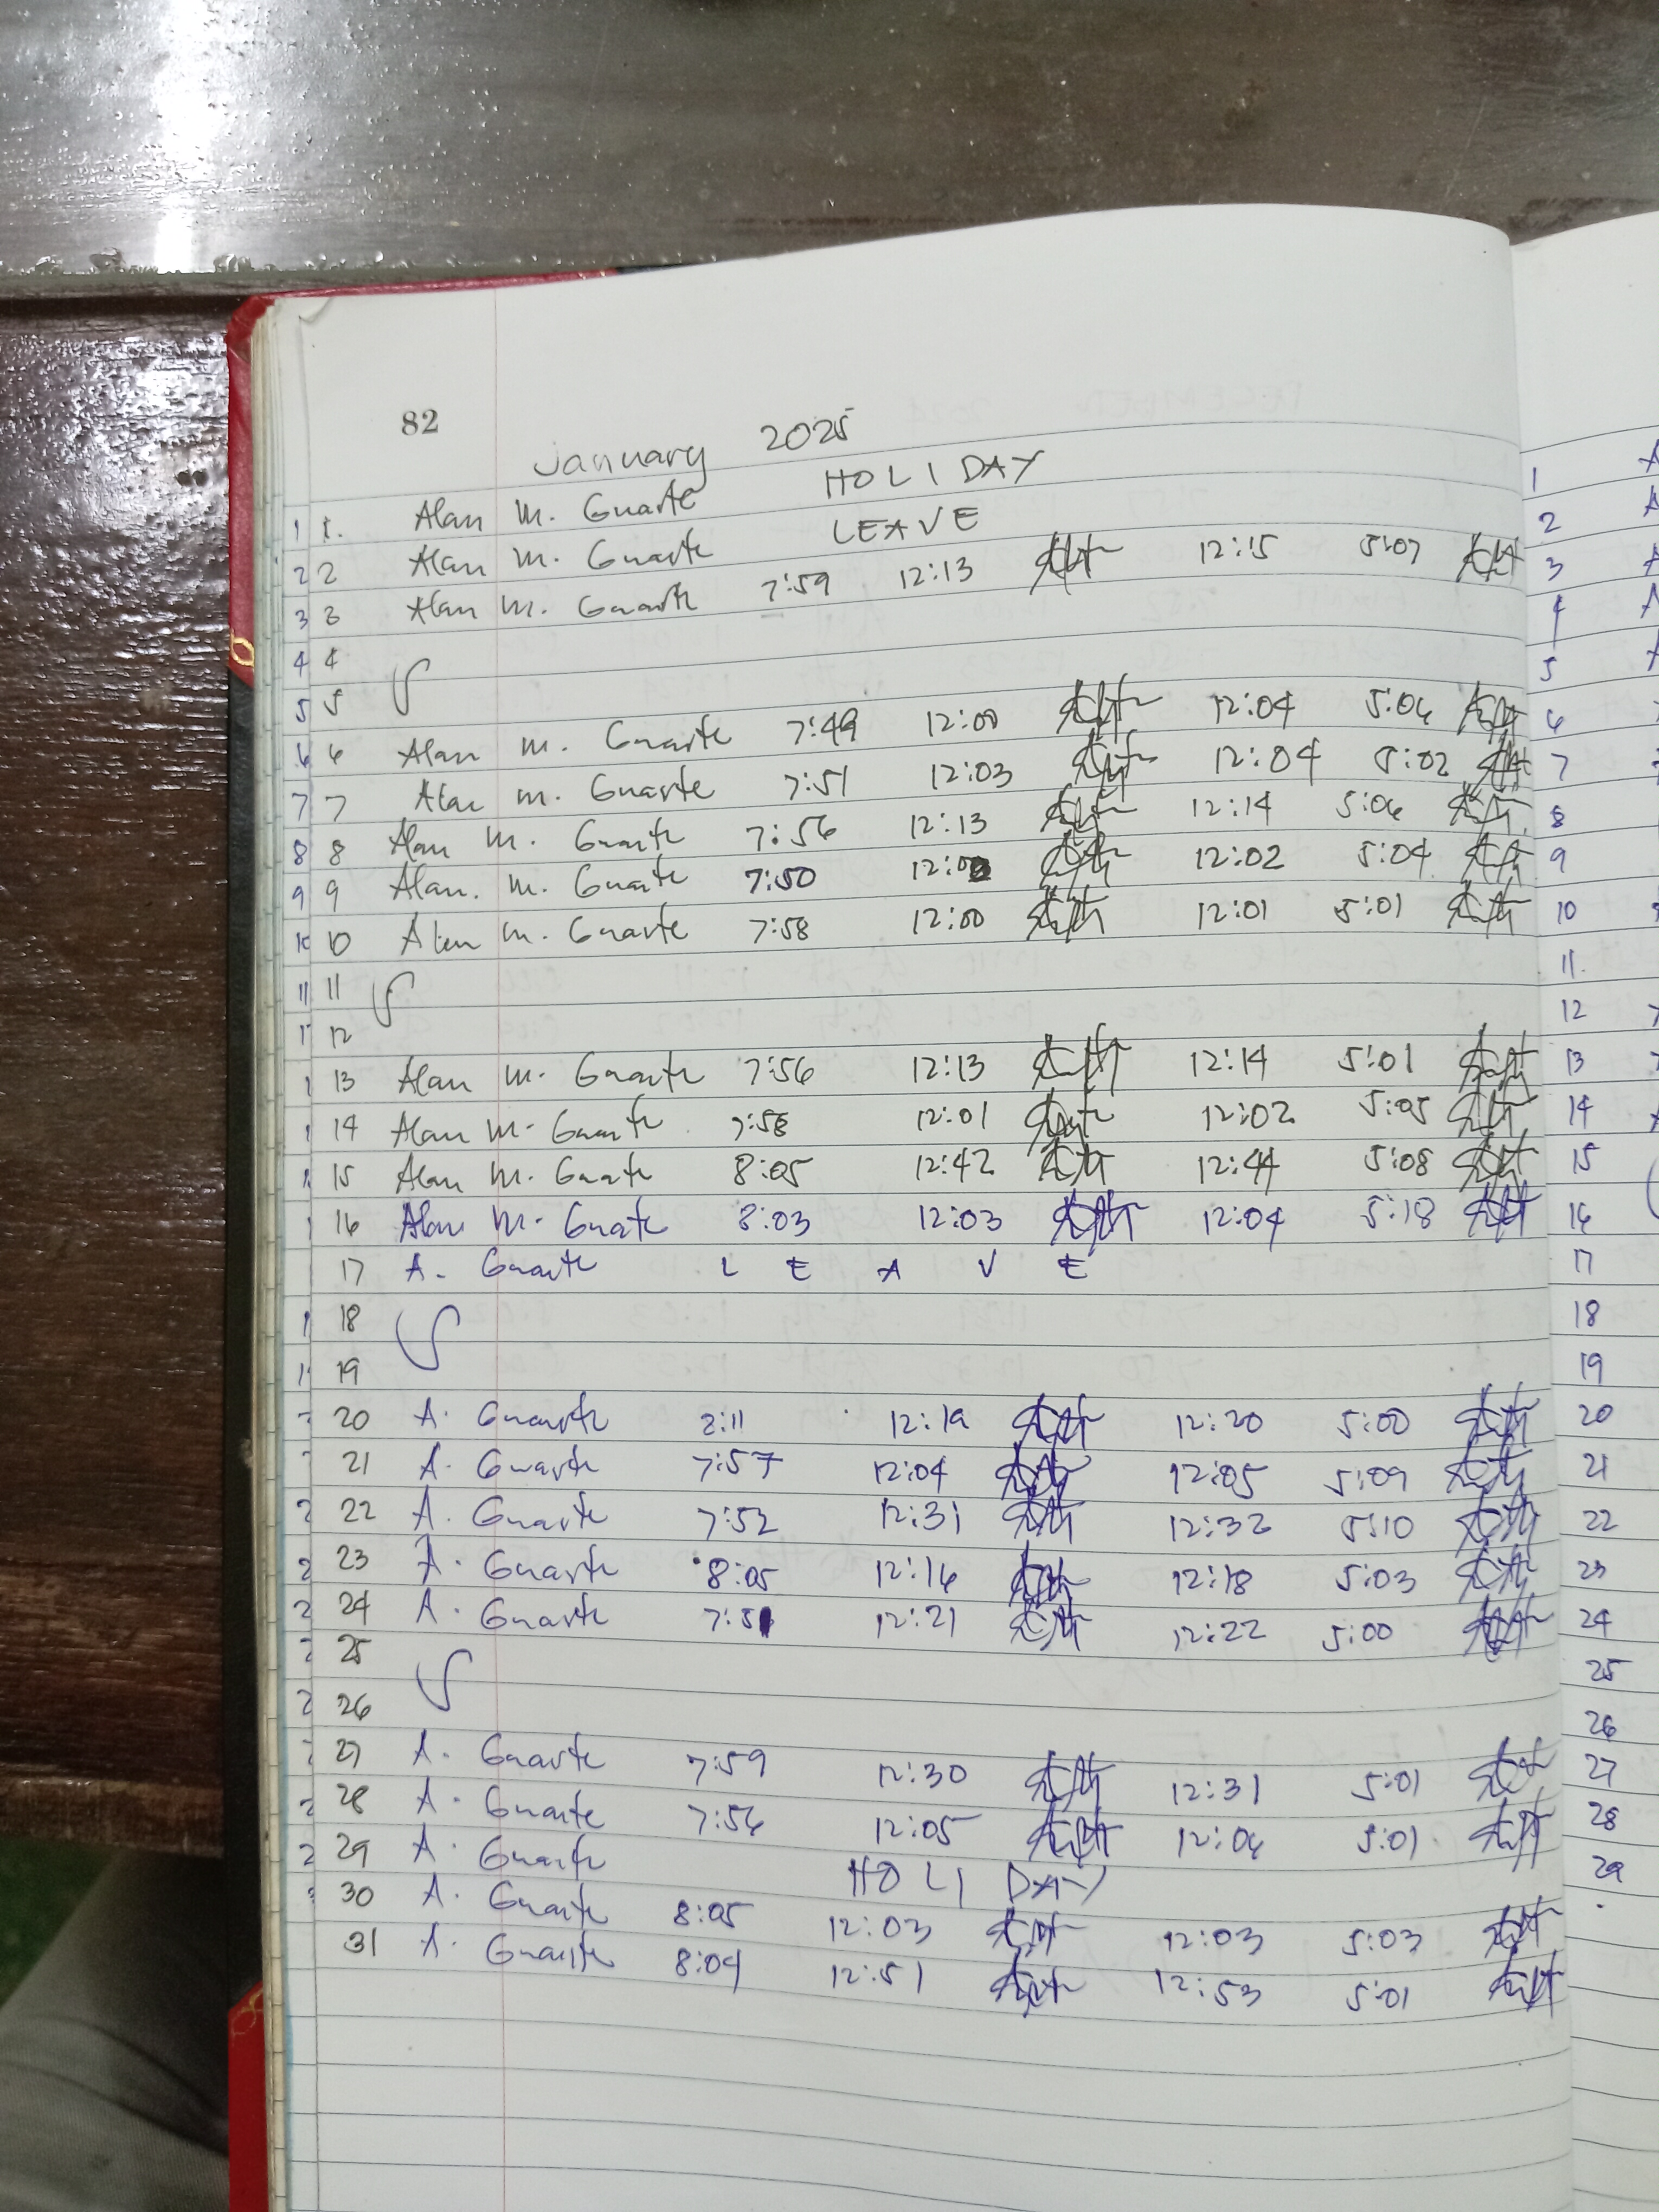 82
January 2025
1 1. Alan M. Guarte HOLIDAY
2 2 Alan M. Guarte LEAVE
3 3 Alan M. Guarte 7:59 12:13 12:15 5:07
4 4
5 5
6 6 Alan M. Guarte 7:49 12:00 12:04 5:06 6
7 7 Alan M. Guarte 7:51 12:03 12:04 5:02 7
8 8 Alan M. Guarte 7:56 12:13 12:14 5:06 8
9 9 Alan. M. Guarte 7:50 12:02 5:04 9
10 10 Alan M. Guarte 7:58 12:00 12:01 5:01 10
11 11 11.
12 12
13 Alan M. Guarte 7:56 12:13 12:14 5:01 13
14 Alan M. Guarte 7:58 12:01 12:02 5:05 14
15 Alan M. Guarte 8:05 12:42 12:44 5:08 15
16 Alan M. Guarte 8:03 12:03 12:04 5:18 16
17 A. Guarte L E A V E 17
18 18
19 19
20 A. Guarte 12:19 12:20 5:00 20
21 A. Guarte 7:57 12:04 12:05 5:09 21
22 A. Guarte 7:52 12:31 12:32 5:10 22
23 A. Guarte 8:05 12:16 12:18 5:03 23
24 A. Guarte 7:51 12:21 12:22 5:00 24
25 25
26 26
27 A. Guarte 7:59 12:30 12:31 5:01 27
28 A. Guarte 7:56 12:05 12:06 5:01 28
29 A. Guarte HOLIDAY 29
30 A. Guarte 8:05 12:03 12:03 5:03
31 A. Guarte 8:04 12:51 12:53 5:01
1
2
3
4
5